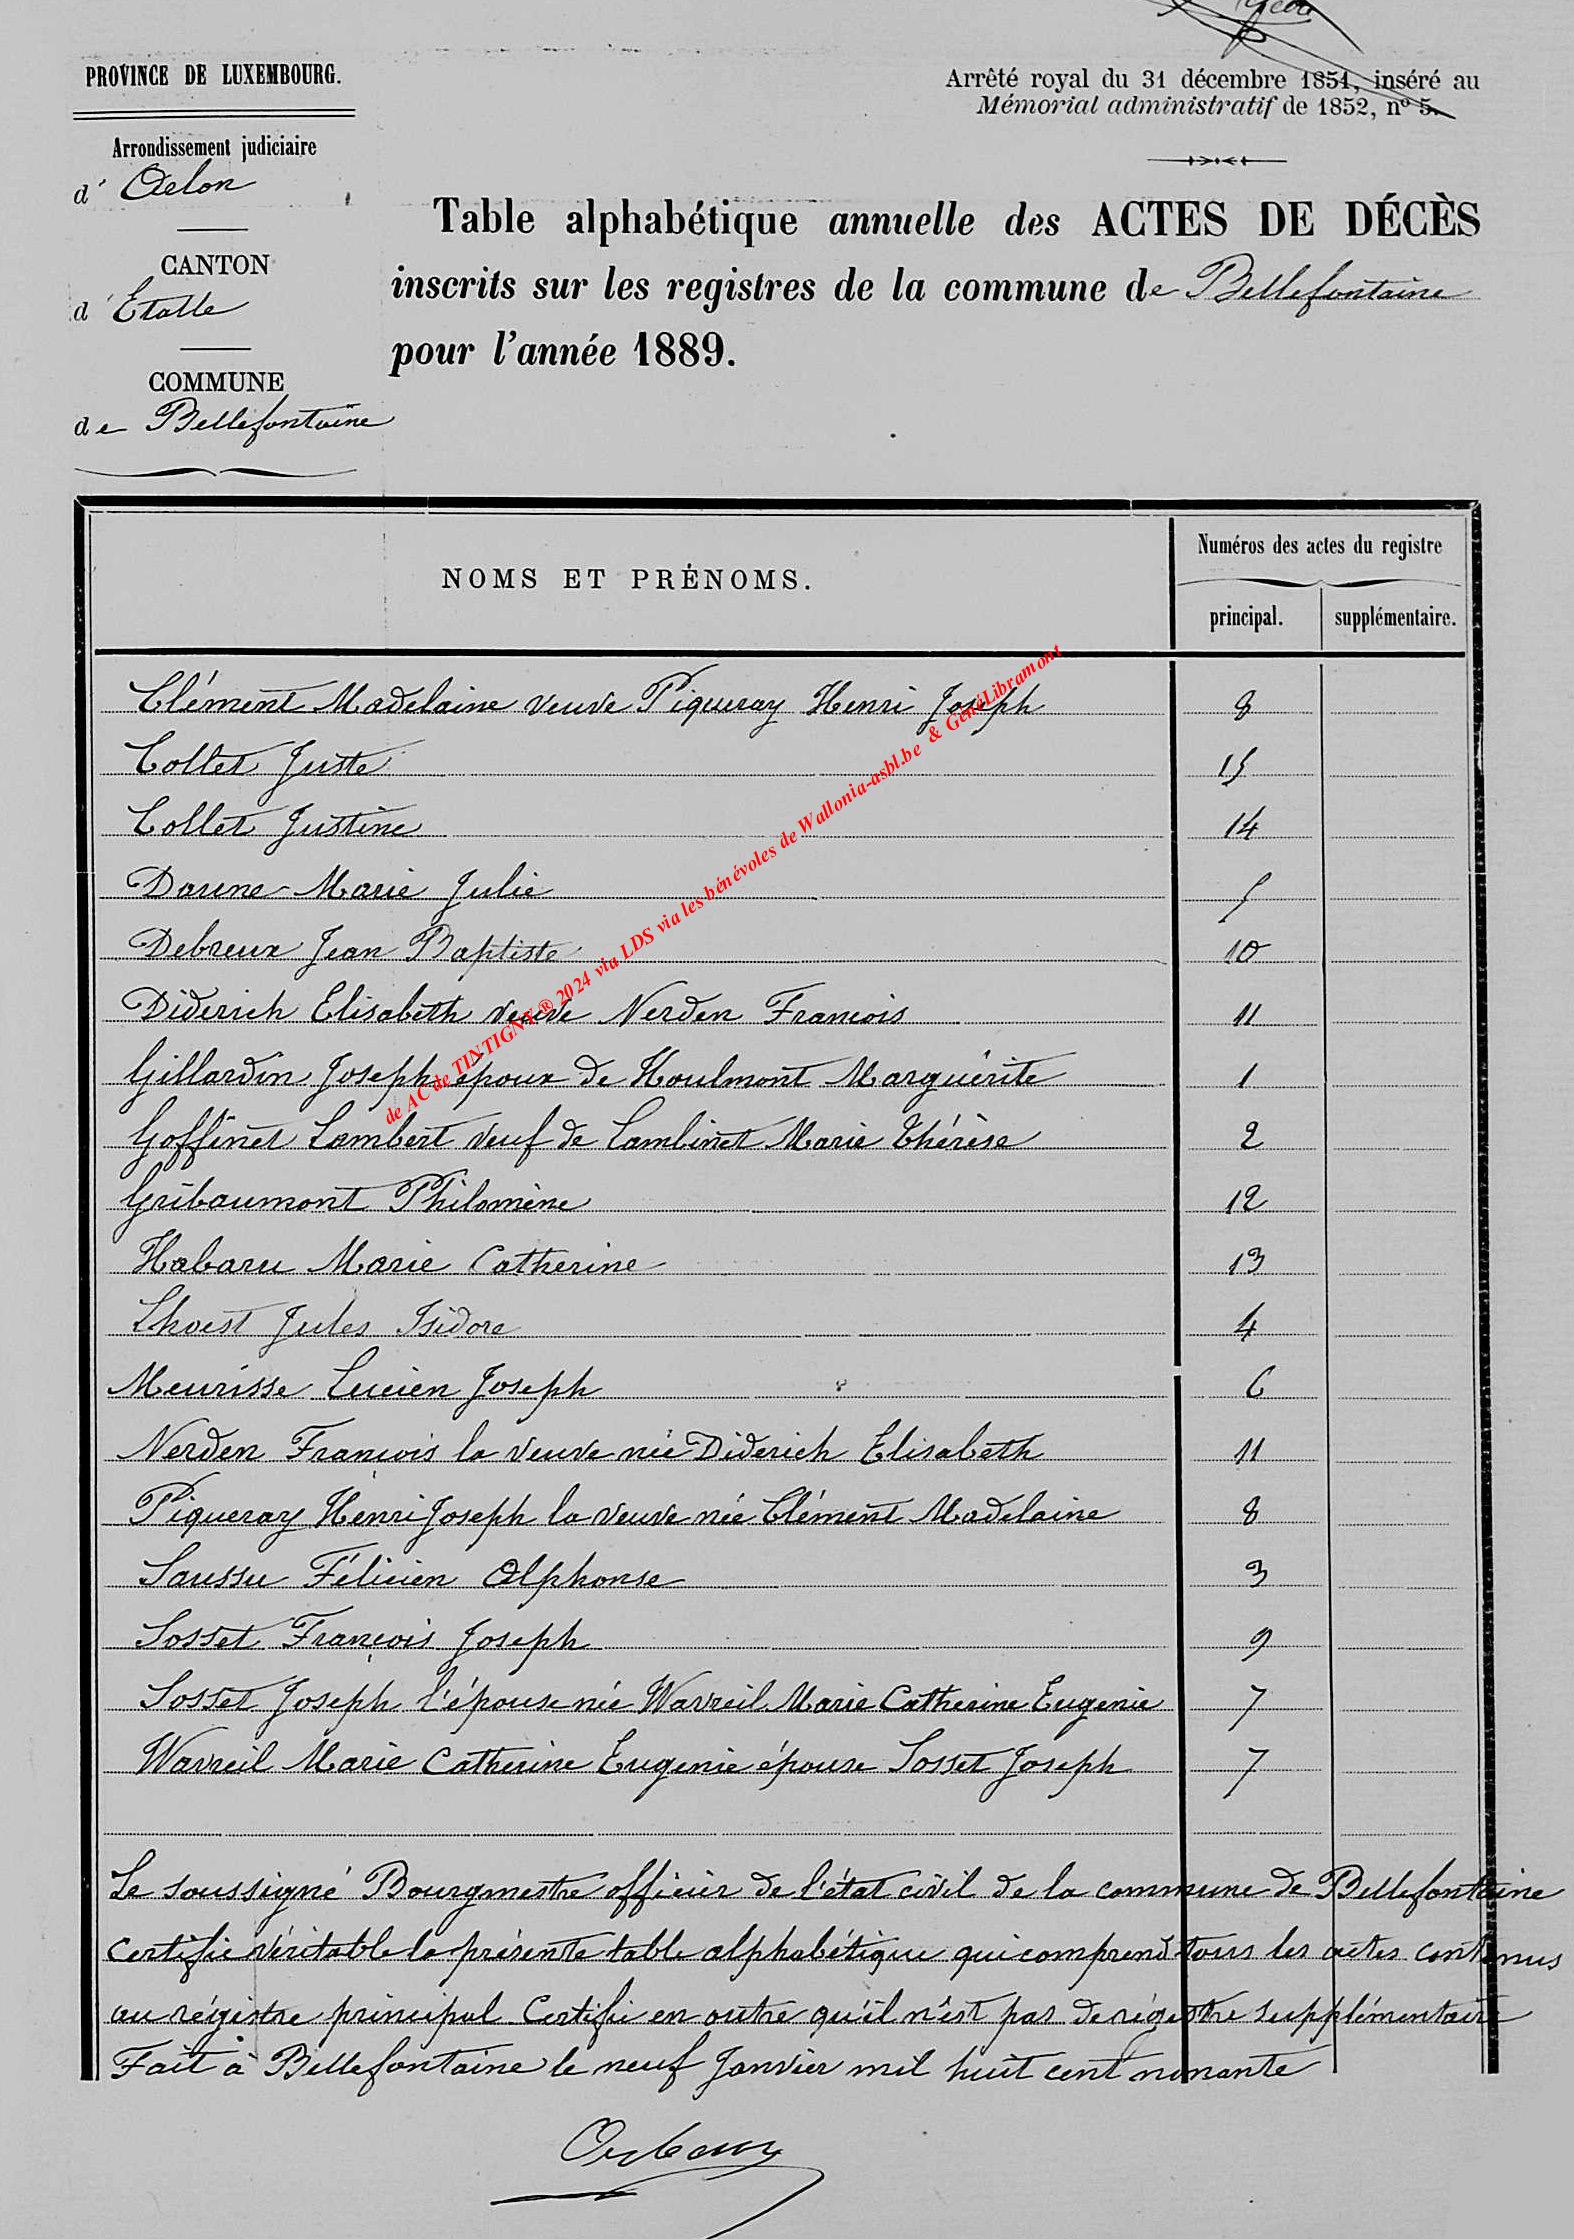 PROVINCE DE LUXEMBOURG.
Arrondissement judiciaire
d' Arlon
CANTON
d'Etalle
COMMUNE
de Bellefontaine
Arrêté royal du 31 décembre 1851, inséré au
Mémorial administratif de 1852, nº 5.
Table alphabétique annuelle des ACTES DE DÉCÈS
inscrits sur les registres de la commune de Bellefontaine
pour l'année 1889.
NOMS ET PRÉNOMS.
Numéros des actes du registre
principal. supplémentaire.
Clément Madelaine veuve Piqueray Henri Joseph 8
Collet Juste 15
Collet Justine 14
Daune Marie Julie 5
Debreux Jean Baptiste 10
Diderich Elisabeth veuve Nerden Francois 11
Gillardin Joseph époux de Houlmont Marguérite 1
Goffinet Lambert veuf de Lambinet Marie Thérèse 2
Gribaumont Philomène 12
Habaru Marie Catherine 13
Lhoest Jules Isidore 4
Meurisse Lucien Joseph 6
Nerden François la veuve née Diderich Elisabeth 11
Piqueray Henri Joseph la veuve née Clément Madelaine 8
Saussu Félicien Alphonse 3
Sosset François Joseph 9
Sosset Joseph l'épouse née Wavreil Marie Catherine Eugenie 7
Wavreil Marie Catherine Eugenie épouse Sosset Joseph 7
Le soussigné Bourgmestre officier de l'état civil de la commune de Bellefontaine
certifie véritable la présente table alphabétique qui comprend tous les actes contenus
au régistre principal. Certifie en outre qu'il n'est pas de régistre supplémentaire
Fait à Bellefontaine le neuf Janvier mil huit cent nonante
de AC de TINTIGNY® 2024 via LDS via les bénévoles de Wallonia-asbl.be & GénéLibramont